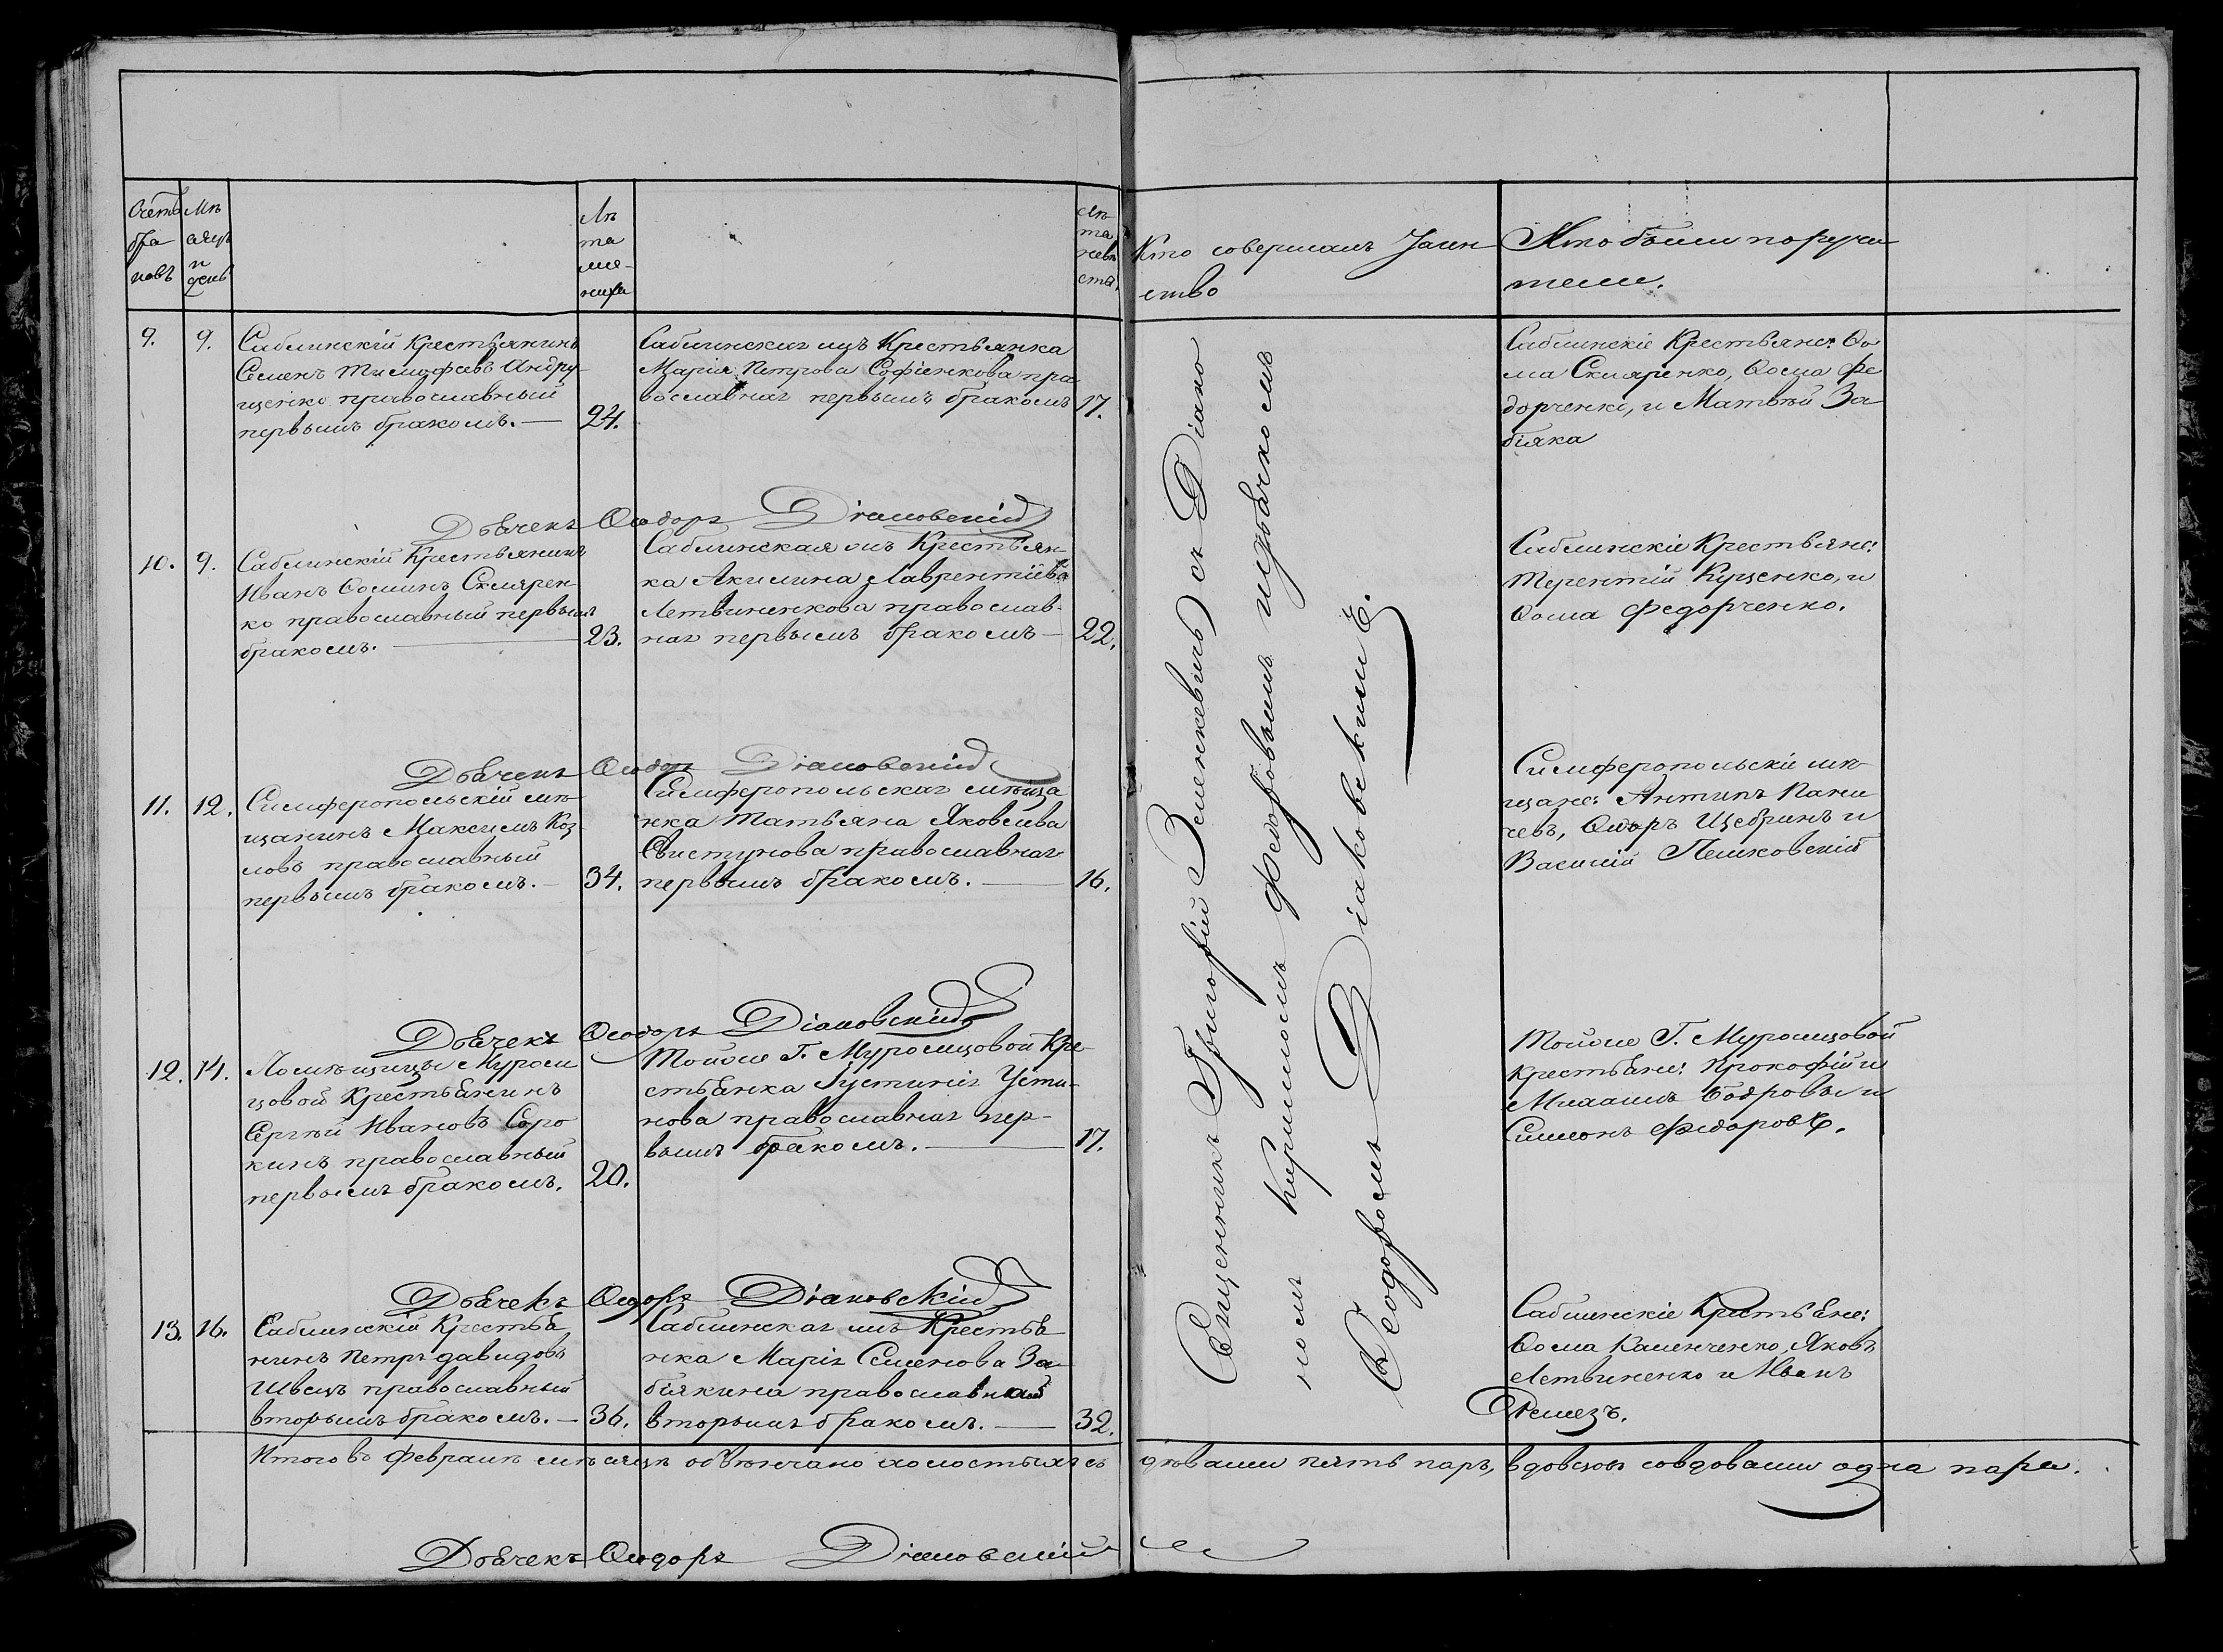 Счетъ
бра
ковъ
Мѣ
сяцъ
и
день
Лѣ
та
же-
ниха
Лѣ
та
невѣ
сты.
Кто совершалъ Таин
ство
Кто были поручи
тели.
9. 9.
Саблинскій Крестьянинъ
Семенъ Тимофеевъ Андру-
щенко православный
первымъ бракомъ. — 24.
Саблинская изъ Крестьянка
Марія Петрова Софіенкова пра
вославная первымъ бракомъ 17.
Саблинскіе Крестьяне: Ѳо
ма Скляренко, Ѳома Фе
дорченко, и Матвѣй За
біяка
Дьячекъ Ѳеодоръ Діаковскій
10. 9.
Саблинскій Крестьянинъ
Иванъ Ѳоминъ Скларен
ко православный первымъ
бракомъ. — 23.
Саблинская изъ Крестьян-
ка Акилина Лаврентіева
Летвиненкова православ-
ная первымъ бракомъ — 22.
Саблинскіе Крестьяне:
Терентій Куценко, и
Ѳома Федорченко.
Дьячекъ Ѳеодоръ Діаковскій
11. 12.
Симферопольскій мѣ
щанинъ Максимъ Коз-
ловъ православный
первымъ бракомъ. — 34.
Симферопольская мѣща
нка Татьяна Яковлева
Свистунова православная
первымъ бракомъ. — 16.
Симферопольскіе мѣ
щане: Антипъ Пани
чевъ, Ѳедоръ Щебринъ и
Василій Пешковскій
Дьячекъ Ѳеодоръ Діаковскій
12. 14.
Помѣщицы Муром
цовой Крестьянинъ
Сергѣй Ивановъ Соро
кинъ православный
первымъ бракомъ. 20.
Тойже Г. Муромцовой Кре-
стьянка Густинія Усти-
нова православная пер-
вымъ бракомъ. — 17.
Тойже Г. Муромцовой
крестьяне: Прокофій и
Михаилъ Бодровы и
Симеонъ Федоровъ.
Дьячекъ Ѳеодоръ Діаковскій
13. 16.
Саблинскій Крестья
нинъ Петръ Давидовъ
Швецъ православный
вторымъ бракомъ. — 36.
Саблинская изъ Крестья
нка Марія Семенова За
біякина православная
вторымъ бракомъ. — 32.
Саблинскіе Крестьяне:
Ѳома Каменченко, Яковъ
Летвиненко и Иванъ
Ремезъ.
Священникъ Григорій Земенкевичъ съ Діако
номъ Кирилломъ Федоровымъ и дьячкомъ
Ѳеодоромъ Діаковскимъ.
Итого въ Февралѣ мѣсяцѣ обвѣнчано холостыхъ съ дѣвами пять паръ, вдовцовъ со вдовами одна пара.
Дьячекъ Ѳеодоръ Діаковскій